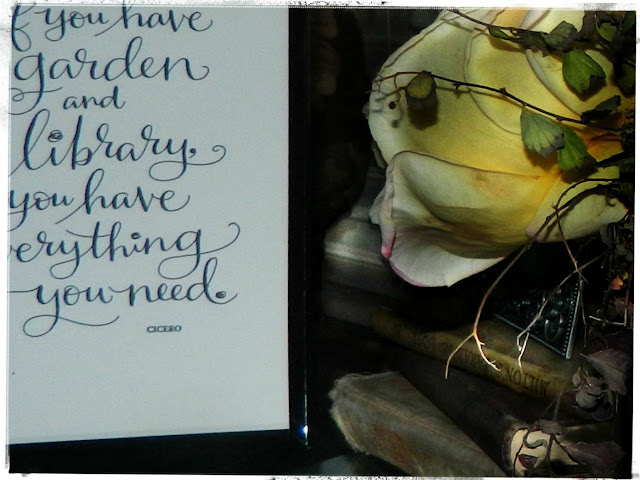 f you have
garden
and
library,
you have
verything
you need.
CICERO